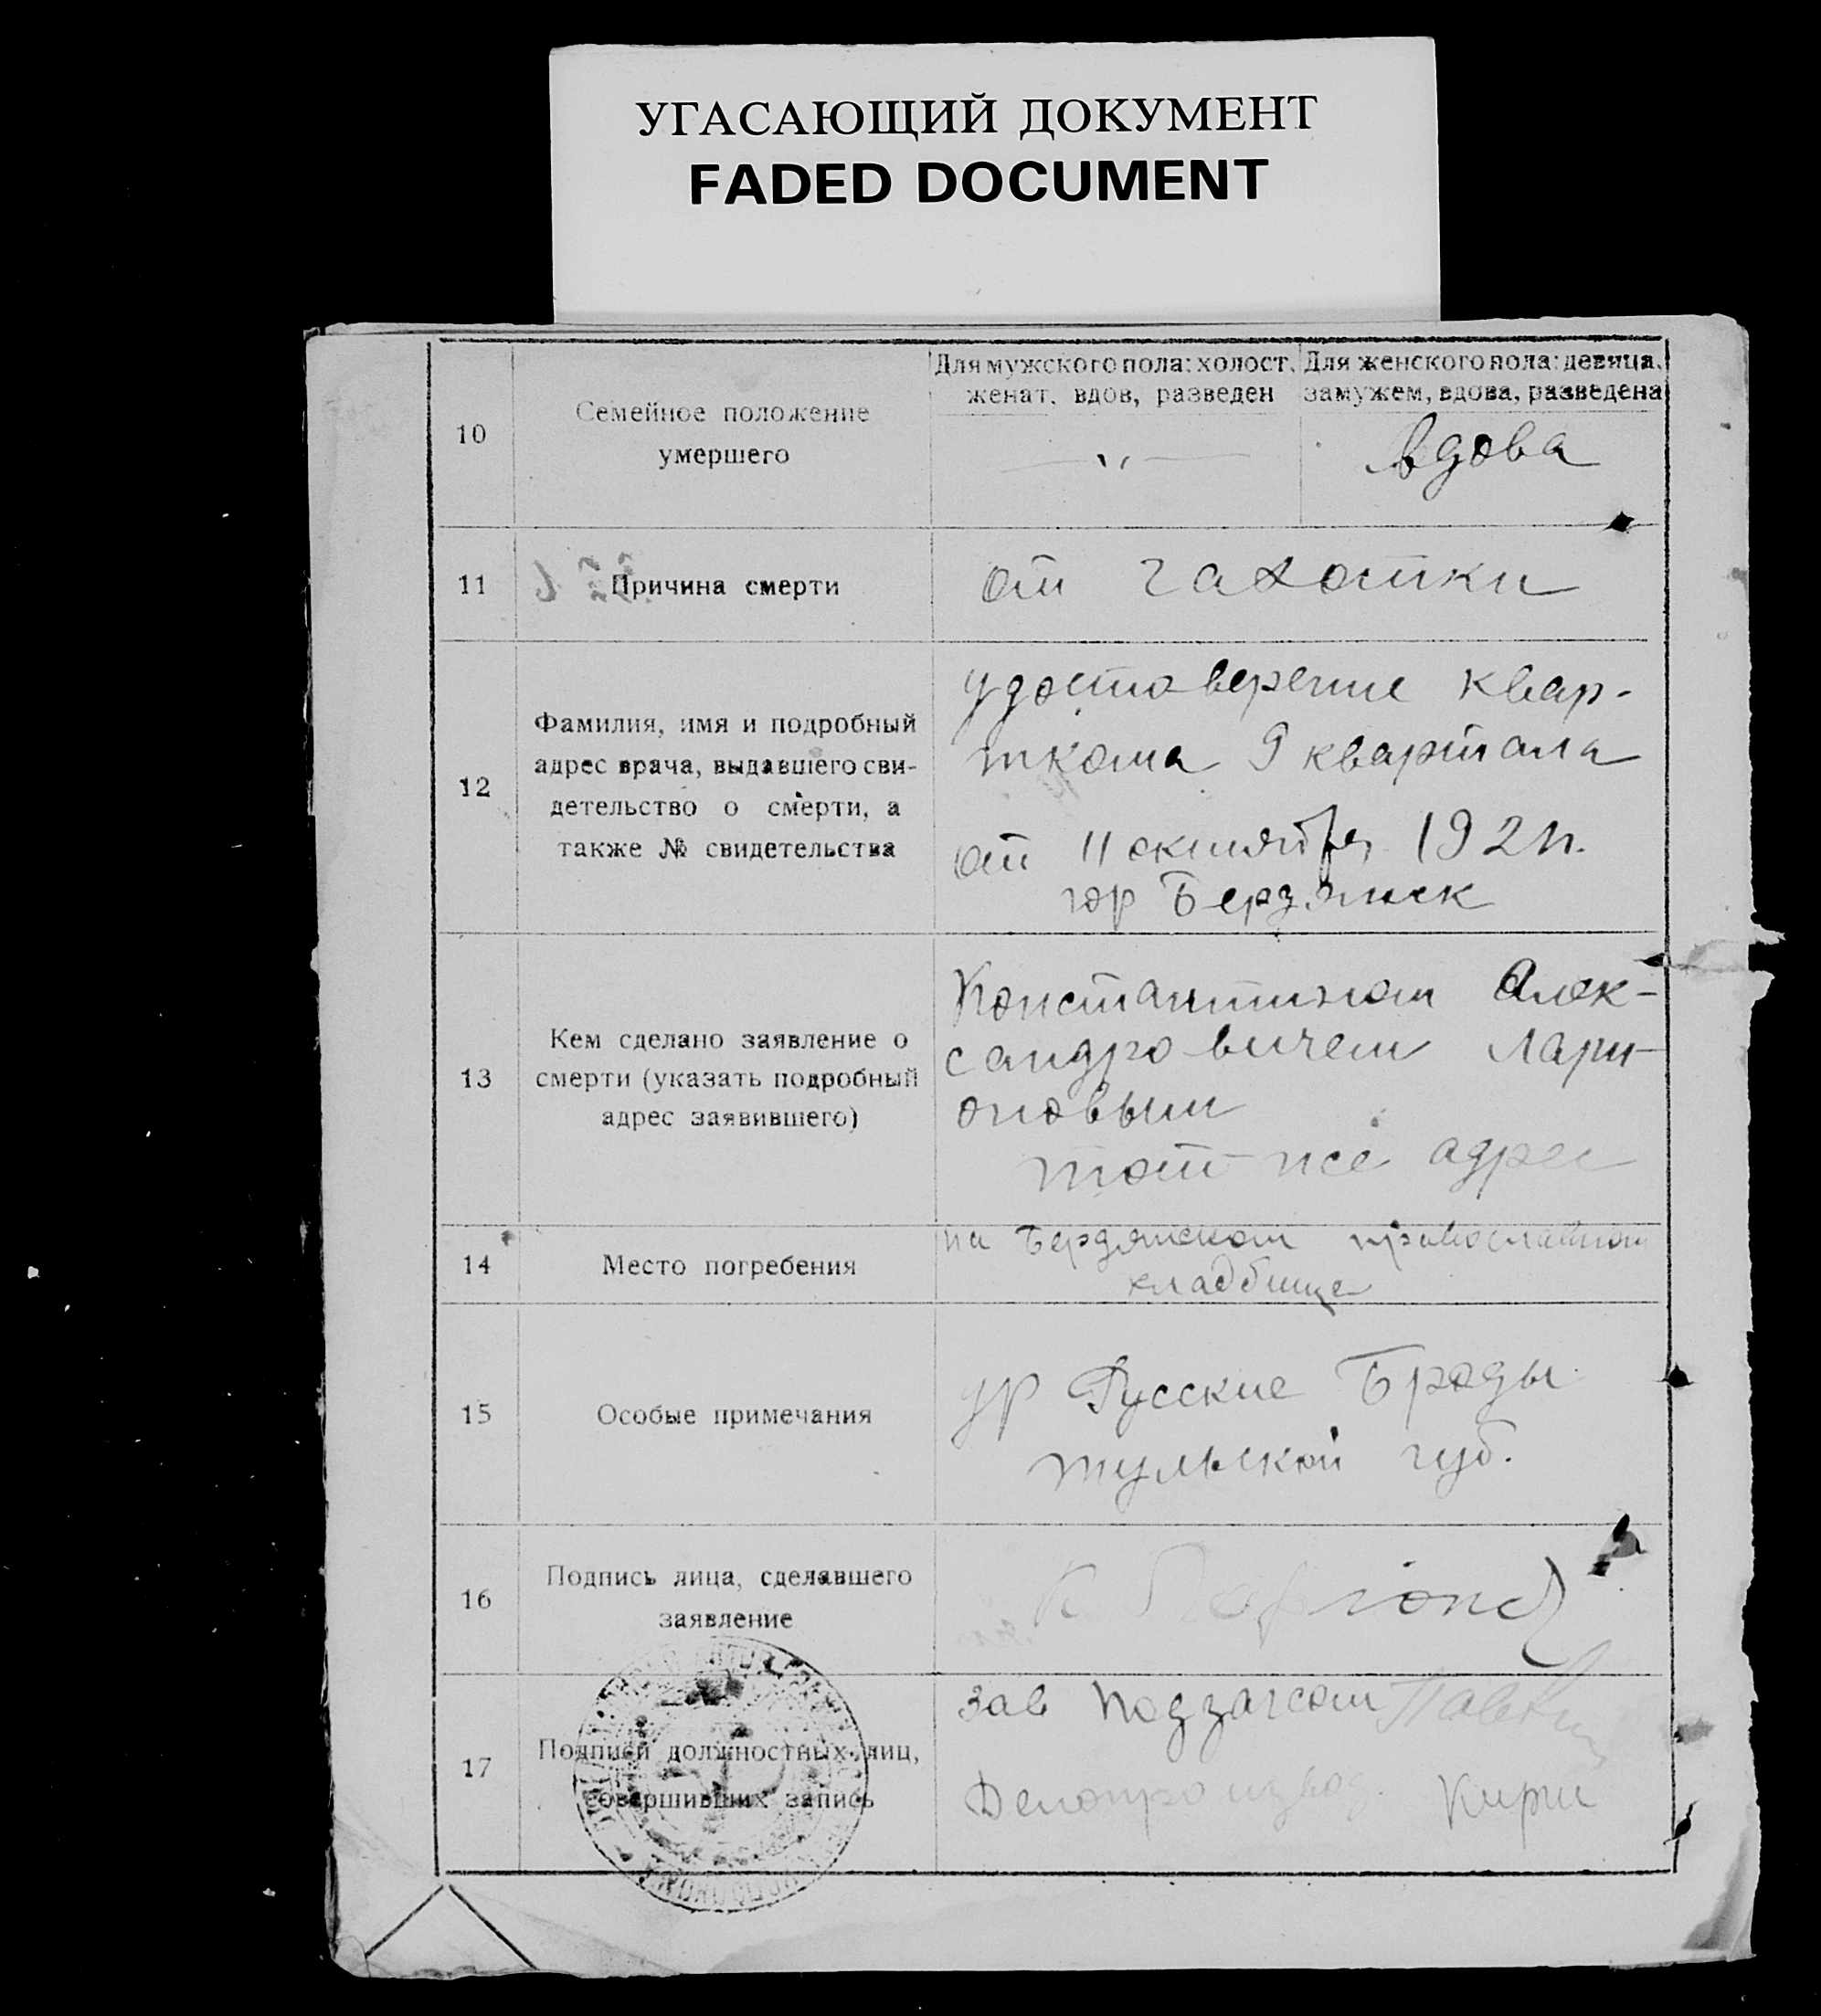 УГАСАЮЩИЙ ДОКУМЕНТ
FADED DOCUMENT
10
Семейное положение
умершего
Для мужского пола: холост,
женат, вдов, разведен
Для женского пола: девица,
замужем, вдова, разведена
— „ —
вдова
11
Причина смерти
от чахотки
12
Фамилия, имя и подробный
адрес врача, выдавшего сви-
детельство о смерти, а
также № свидетельства
удостоверение квар-
ткома 9 квартала
от 11 октября 192
гор Бердянск
13
Кем сделано заявление о
смерти (указать подробный
адрес заявившего)
Константином Алек-
сандровичем Лари-
оновым
тот же адрес
14
Место погребения
на Бердянском православном
кладбище
15
Особые примечания
ур Русские Броды
тульской губ.
16
Подпись лица, сделавшего
заявление
К
17
Подписи должностных лиц,
совершивших запись
Зав Подзагсом
Делопроизвод.